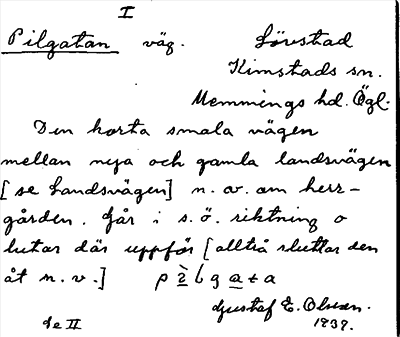 I
Pilgatan väg. Lövstad
Kimstads sn.
Memmings hd. Ögl.
Den korta smala vägen
mellan nya och gamla landsvägen
[se Landsvägen] n. av. om herr-
gården. Går i s.ö. riktning o
lutar där uppför [alltså sluttar den
åt n.v.] p ì l g a t a
Gustaf E. Olsson.
se II 1939.